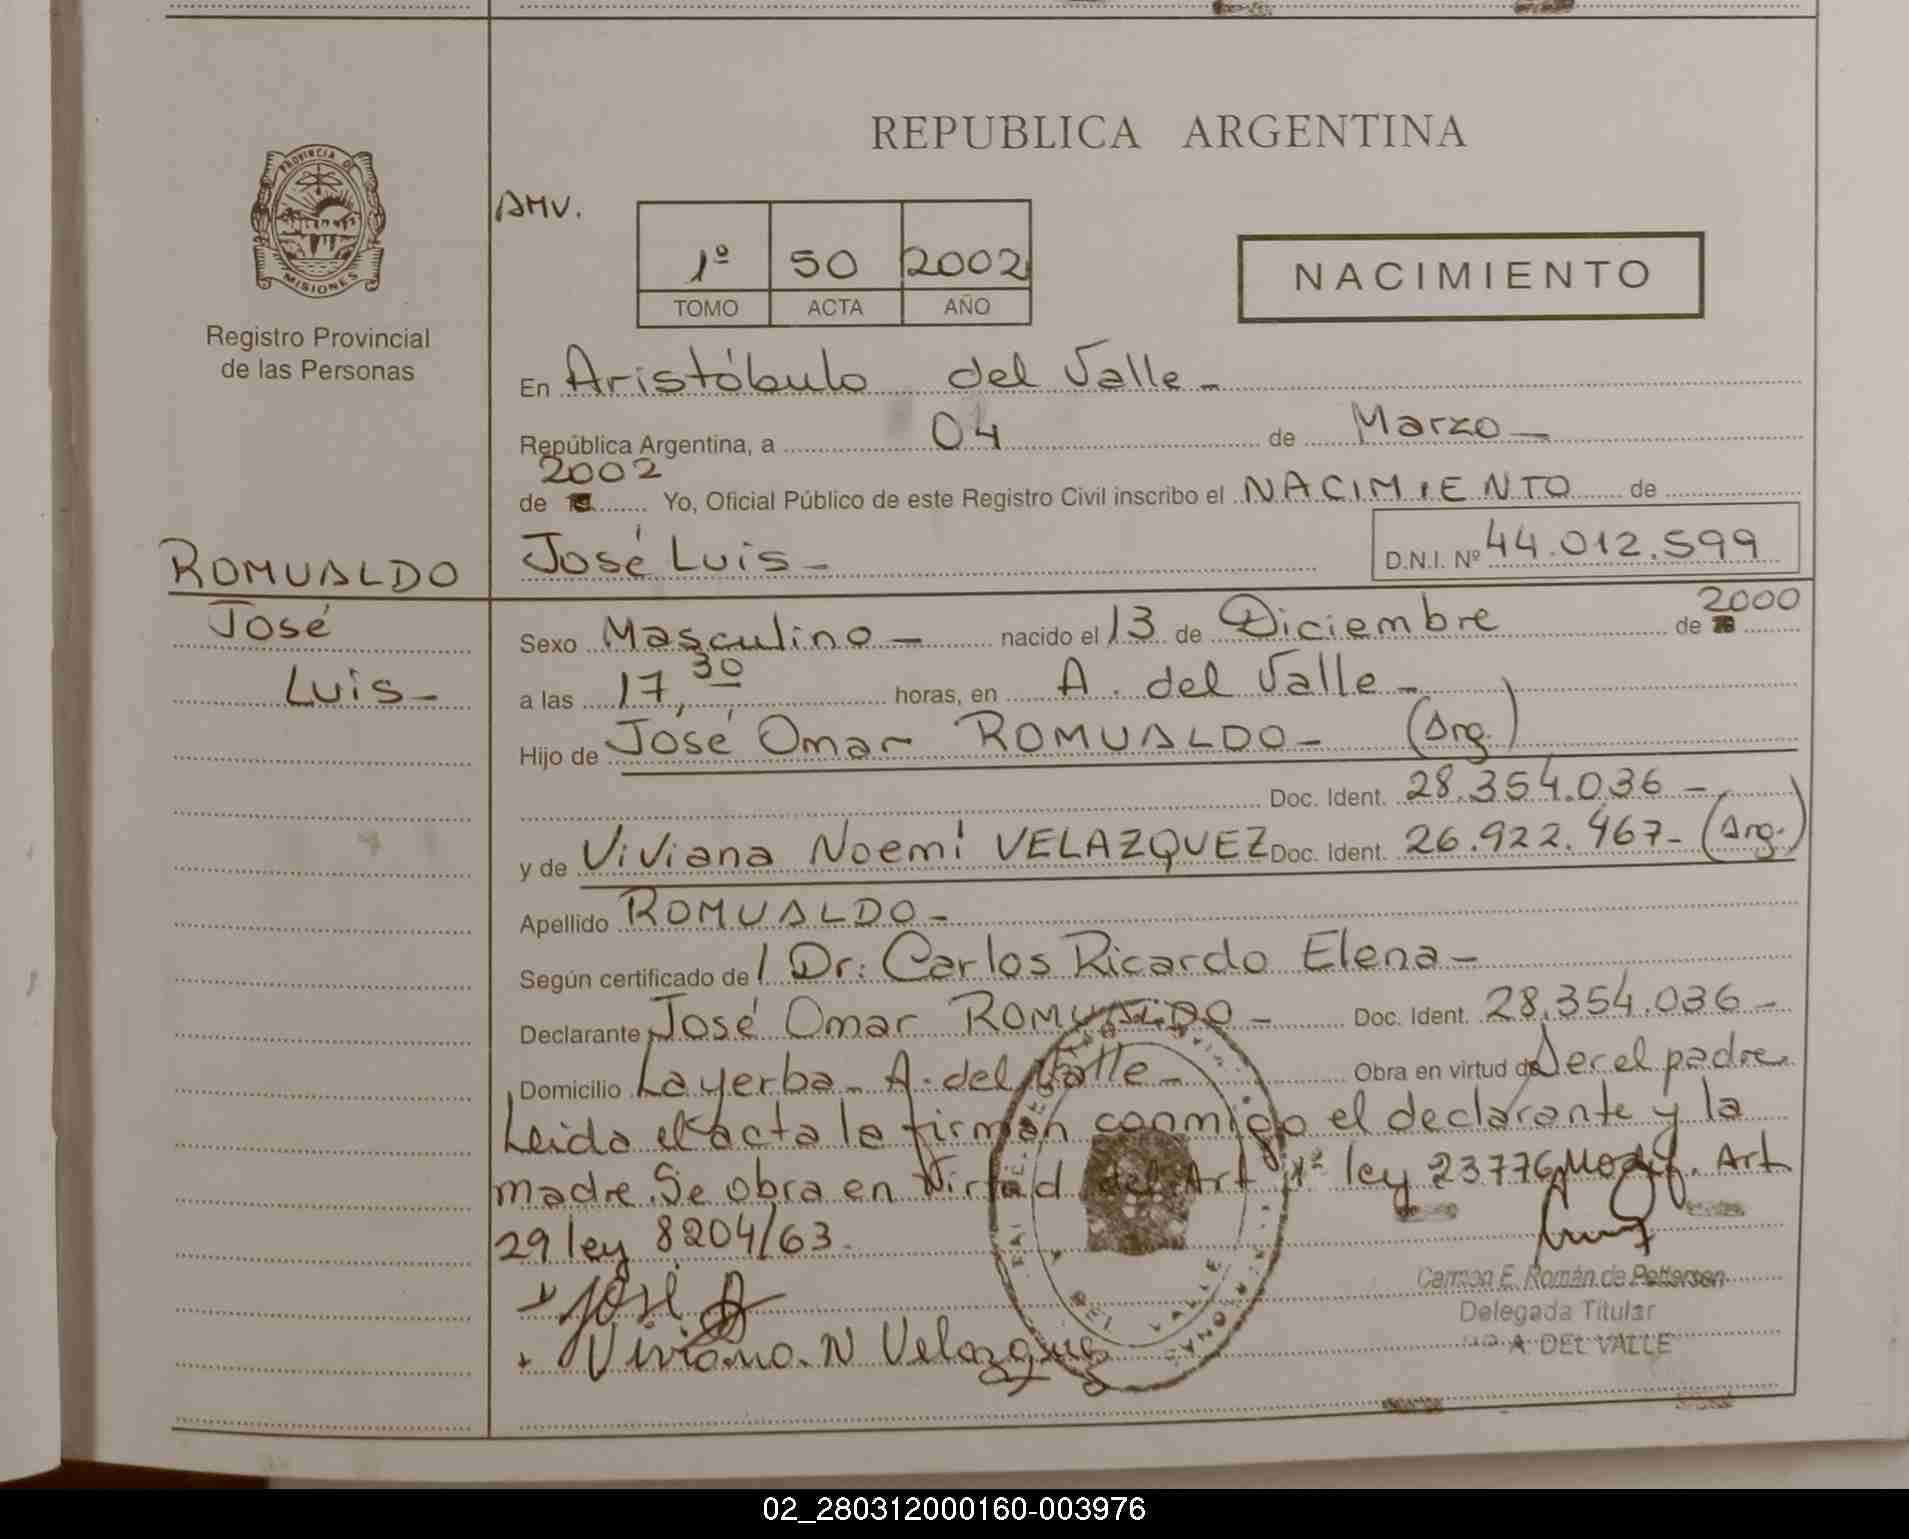 REPUBLICA ARGENTINA
PROVINCIA DE
MISIONES
Registro Provincial
de las Personas
AMV.
1º 50 2002
TOMO ACTA AÑO
NACIMIENTO
En Aristóbulo del Valle -
República Argentina, a 04 de Marzo -
2002
de 19 Yo, Oficial Público de este Registro Civil inscribo el NACIMIENTO de
José Luis - D.N.I. Nº 44.012.599
ROMUALDO
José
Luis -
Sexo Masculino - nacido el 13 de Diciembre de 2000
a las 17,30 horas, en A. del Valle -
Hijo de José Omar ROMUALDO - (Arg.)
Doc. Ident. 28.354.036 -
y de Viviana Noemí VELAZQUEZ Doc. Ident. 26.922.467 - (Arg.)
Apellido ROMUALDO -
Según certificado de / Dr. Carlos Ricardo Elena -
Declarante José Omar ROMUALDO - Doc. Ident. 28.354.036 -
Domicilio La yerba - A. del Valle - Obra en virtud de ser el padre
Leida el acta la firman conmigo el declarante y la
madre. Se obra en virtud del Art 1º ley 23776 Modif. Art
29 ley 8204/63.
José
Viviana. N Velazquez
DEL VALLE
Carmen E. Román de Pettersen
Delegada Titular
A. DEL VALLE
02_280312000160-003976